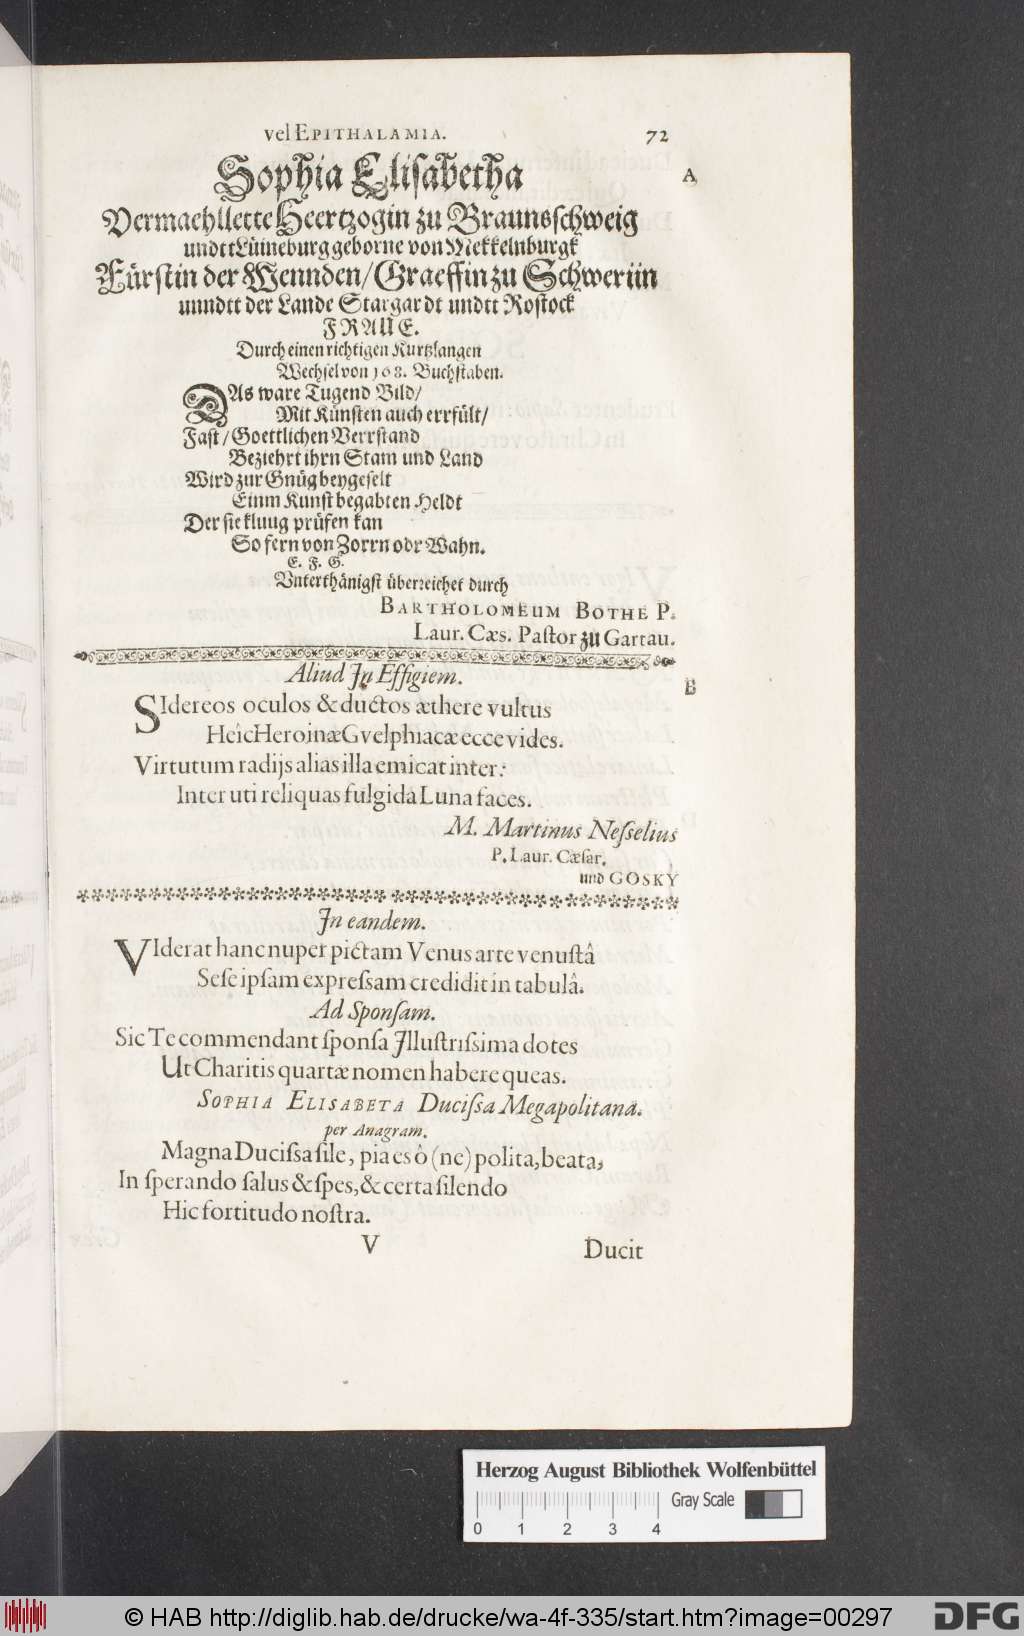 vel EPITHALAMIA. 72
A
Sophia Elisabetha
Vermaehllette Heertzogin zu Braunsschweig
undtt Lüineburg geborne von Mekkelnburgk
Fürstin der Wennden/ Graeffin zu Schweriin
unndtt der Lande Stargardt undtt Rostock
FRAUE.
Durch einen richtigen Kurtzlangen
Wechsel von 168. Buchstaben.
DAs ware Tugend Bild/
Mit Künsten auch errfült/
Fast/ Goettlichen Verrstand
Beziehrt ihrn Stam und Land
Wird zur Gnüg beygeselt
Einm Kunst begabten Heldt
Der sie kluug prüfen kan
So fern von Zorrn odr Wahn.
E. F. G.
Unterthänigst überreichet durch
BARTHOLOMEUM BOTHE P.
Laur. Cæs. Pastor zu Gartau.
Aliud In Effigiem.
B
SIdereos oculos & ductos æthere vultus
Heîc Heroinæ Gvelphiacæ ecce vides.
Virtutum radijs alias illa emicat inter:
Inter uti reliquas fulgida Luna faces.
M. Martinus Nesselius
P. Laur. Cæsar.
und GOSKY
In eandem.
VIderat hanc nuper pictam Venus arte venustâ
Sese ipsam expressam credidit in tabulâ.
Ad Sponsam.
Sic Te commendant sponsa Illustrissima dotes
Ut Charitis quartæ nomen habere queas.
SOPHIA ELISABETA Ducissa Megapolitana.
per Anagram.
Magna Ducissa sile, pia es ô (ne) polita, beata,
In sperando salus & spes, & certa silendo
Hic fortitudo nostra.
V Ducit
Herzog August Bibliothek Wolfenbüttel
Gray Scale
0 1 2 3 4
© HAB http://diglib.hab.de/drucke/wa-4f-335/start.htm?image=00297
DFG